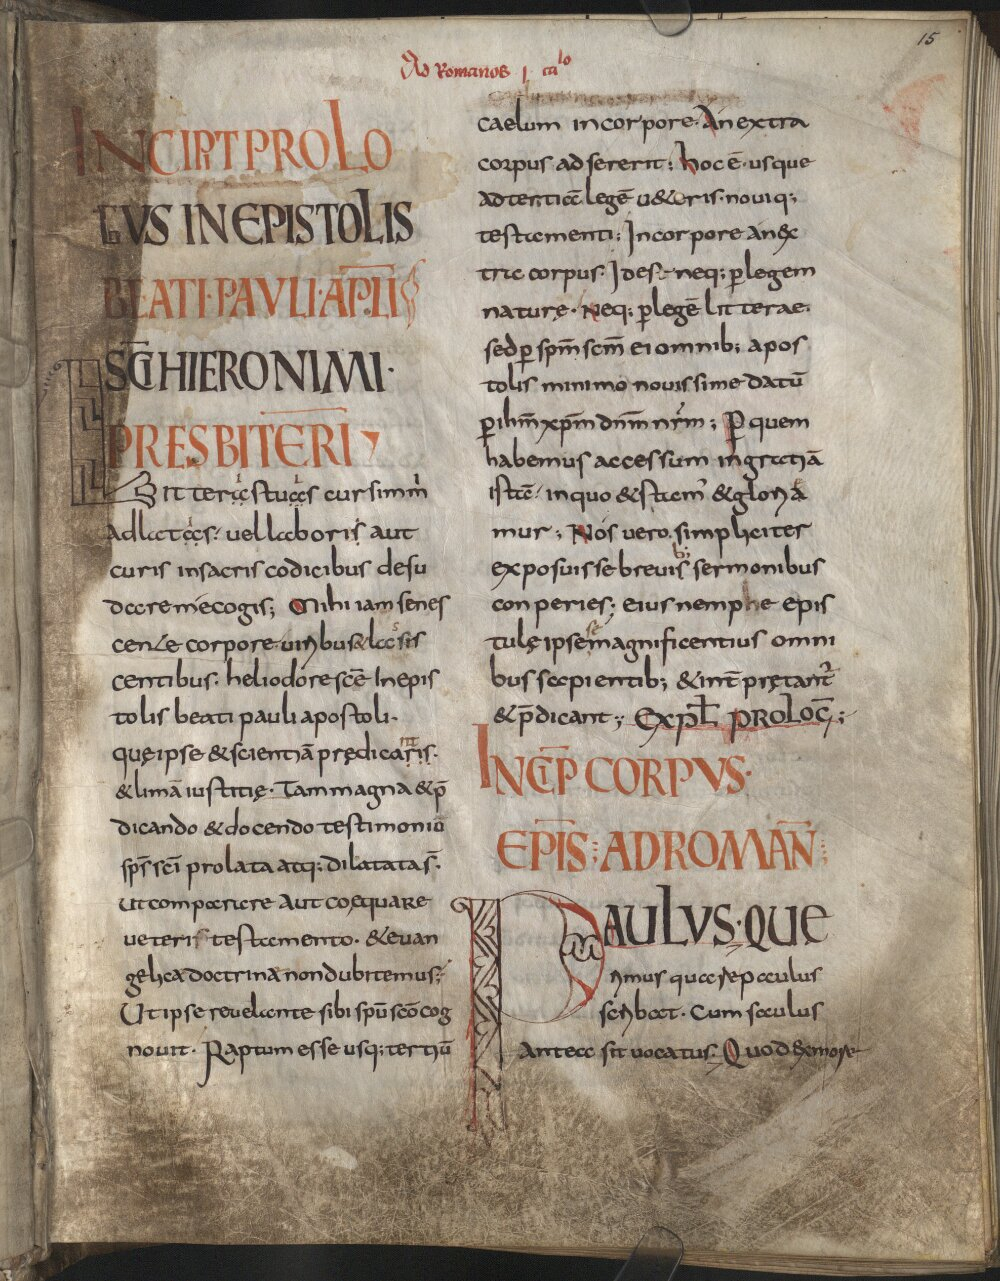 15
Ad Romanos j ca lo
INCIPIT PROLO
GVS IN EPISTOLIS
BEATI·PAVLI·AP̅L̅I
SC̅I HIERONIMI·
PRESBITERI
Litteris tuis cursimm̅
ad lectas· vel laboris aut
curis insacris codicibus desu
dare me cogis; Mihi iam senes
cente corpore viribus lassis
centibus· heliodore sc̅e In epis
tolis beati pauli apostoli·
quę ipse & scientia̅ prędicaris·
& lima̅ iustitię· Tam magna & p̅
dicando & docendo testimoniu̅
sp̅s sc̅i prolata atq; dilatata s̅·
ut comparare aut coęquare
veteri testamento· & evan
gelica doctrina non dubitemus;
Ut ipse revelante sibi sp̅u sc̅o cog
novit· Raptum esse usq; tertiu̅
caelum in corpore· An extra
corpus ad sererit; hoc e̅· usque
ad tertia̅ lege̅ v&eris· noviq;
testamenti; In corpore an ex
tra corpus· Id est neq; p̲legem
naturę· Neq; p̲lege̅ litterae·
sed p̲ sp̅m sc̅m ei omnib; apos
tolis minimo novissime datu̅
p̲ ih̅m xp̅m dn̅m nr̅m; P̲ quem
habemus accessum in gratia̅
ista̅· in quo & stam' & gloria
mur; Nos vero simpliciter
exposuisse brevibus sermonibus
conperies; eius nemphe epis
tulę ipse se magnificentius omni
bus sapientib; & int̅ prętant̅
& p̅dicant; EXPL̅ PROLOG̅;
INCI̅P CORPVS·
EPI̅S: AD ROMAN̅:
PAULVS·QUE
rimus quare paulus
scribat· Cum saulus
Antea sit vocatus· Quod & more